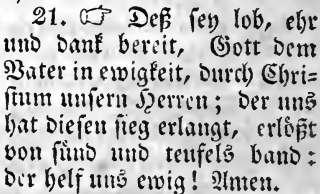 21. ☞ Deß sey lob, ehr
und dank bereit, Gott dem
Vater in ewigkeit, durch Chri-
stum unsern Herren; der uns
hat diesen sieg erlangt, erlößt
von sünd und teufels band:
der helf uns ewig! Amen.